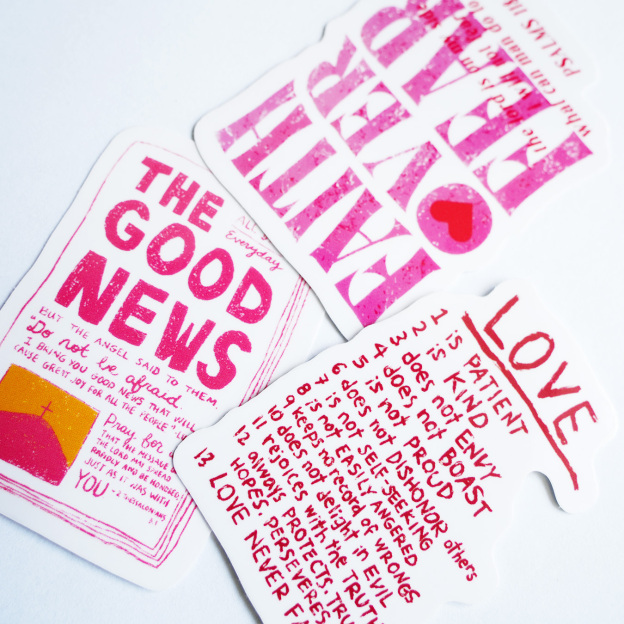 THE
GOOD
NEWS
ALL
Everyday
BUT THE ANGEL SAID TO THEM,
"Do not be afraid.
I BRING YOU GOOD NEWS THAT WILL
CAUSE GREAT JOY FOR ALL THE PEOPLE"
Pray for
THAT THE MESSAGE
THE LORD MAY SPREAD
RAPIDLY AND BE HONORED
JUST AS IT WAS WITH
YOU
FAITH
OVER
FEAR
the lord is on my side
I will not fear
what can man do to
PSALMS 118
LOVE
1 is PATIENT
2 is KIND
3 does not ENVY
4 does not BOAST
5 is not PROUD
6 does not DISHONOR others
7 is not SELF-SEEKING
8 is not EASILY ANGERED
9 keeps no record of WRONGS
10 does not delight in EVIL
11 rejoices with the TRUTH
12 always PROTECTS, TRU
HOPES, PERSEVERES
13 LOVE NEVER FA